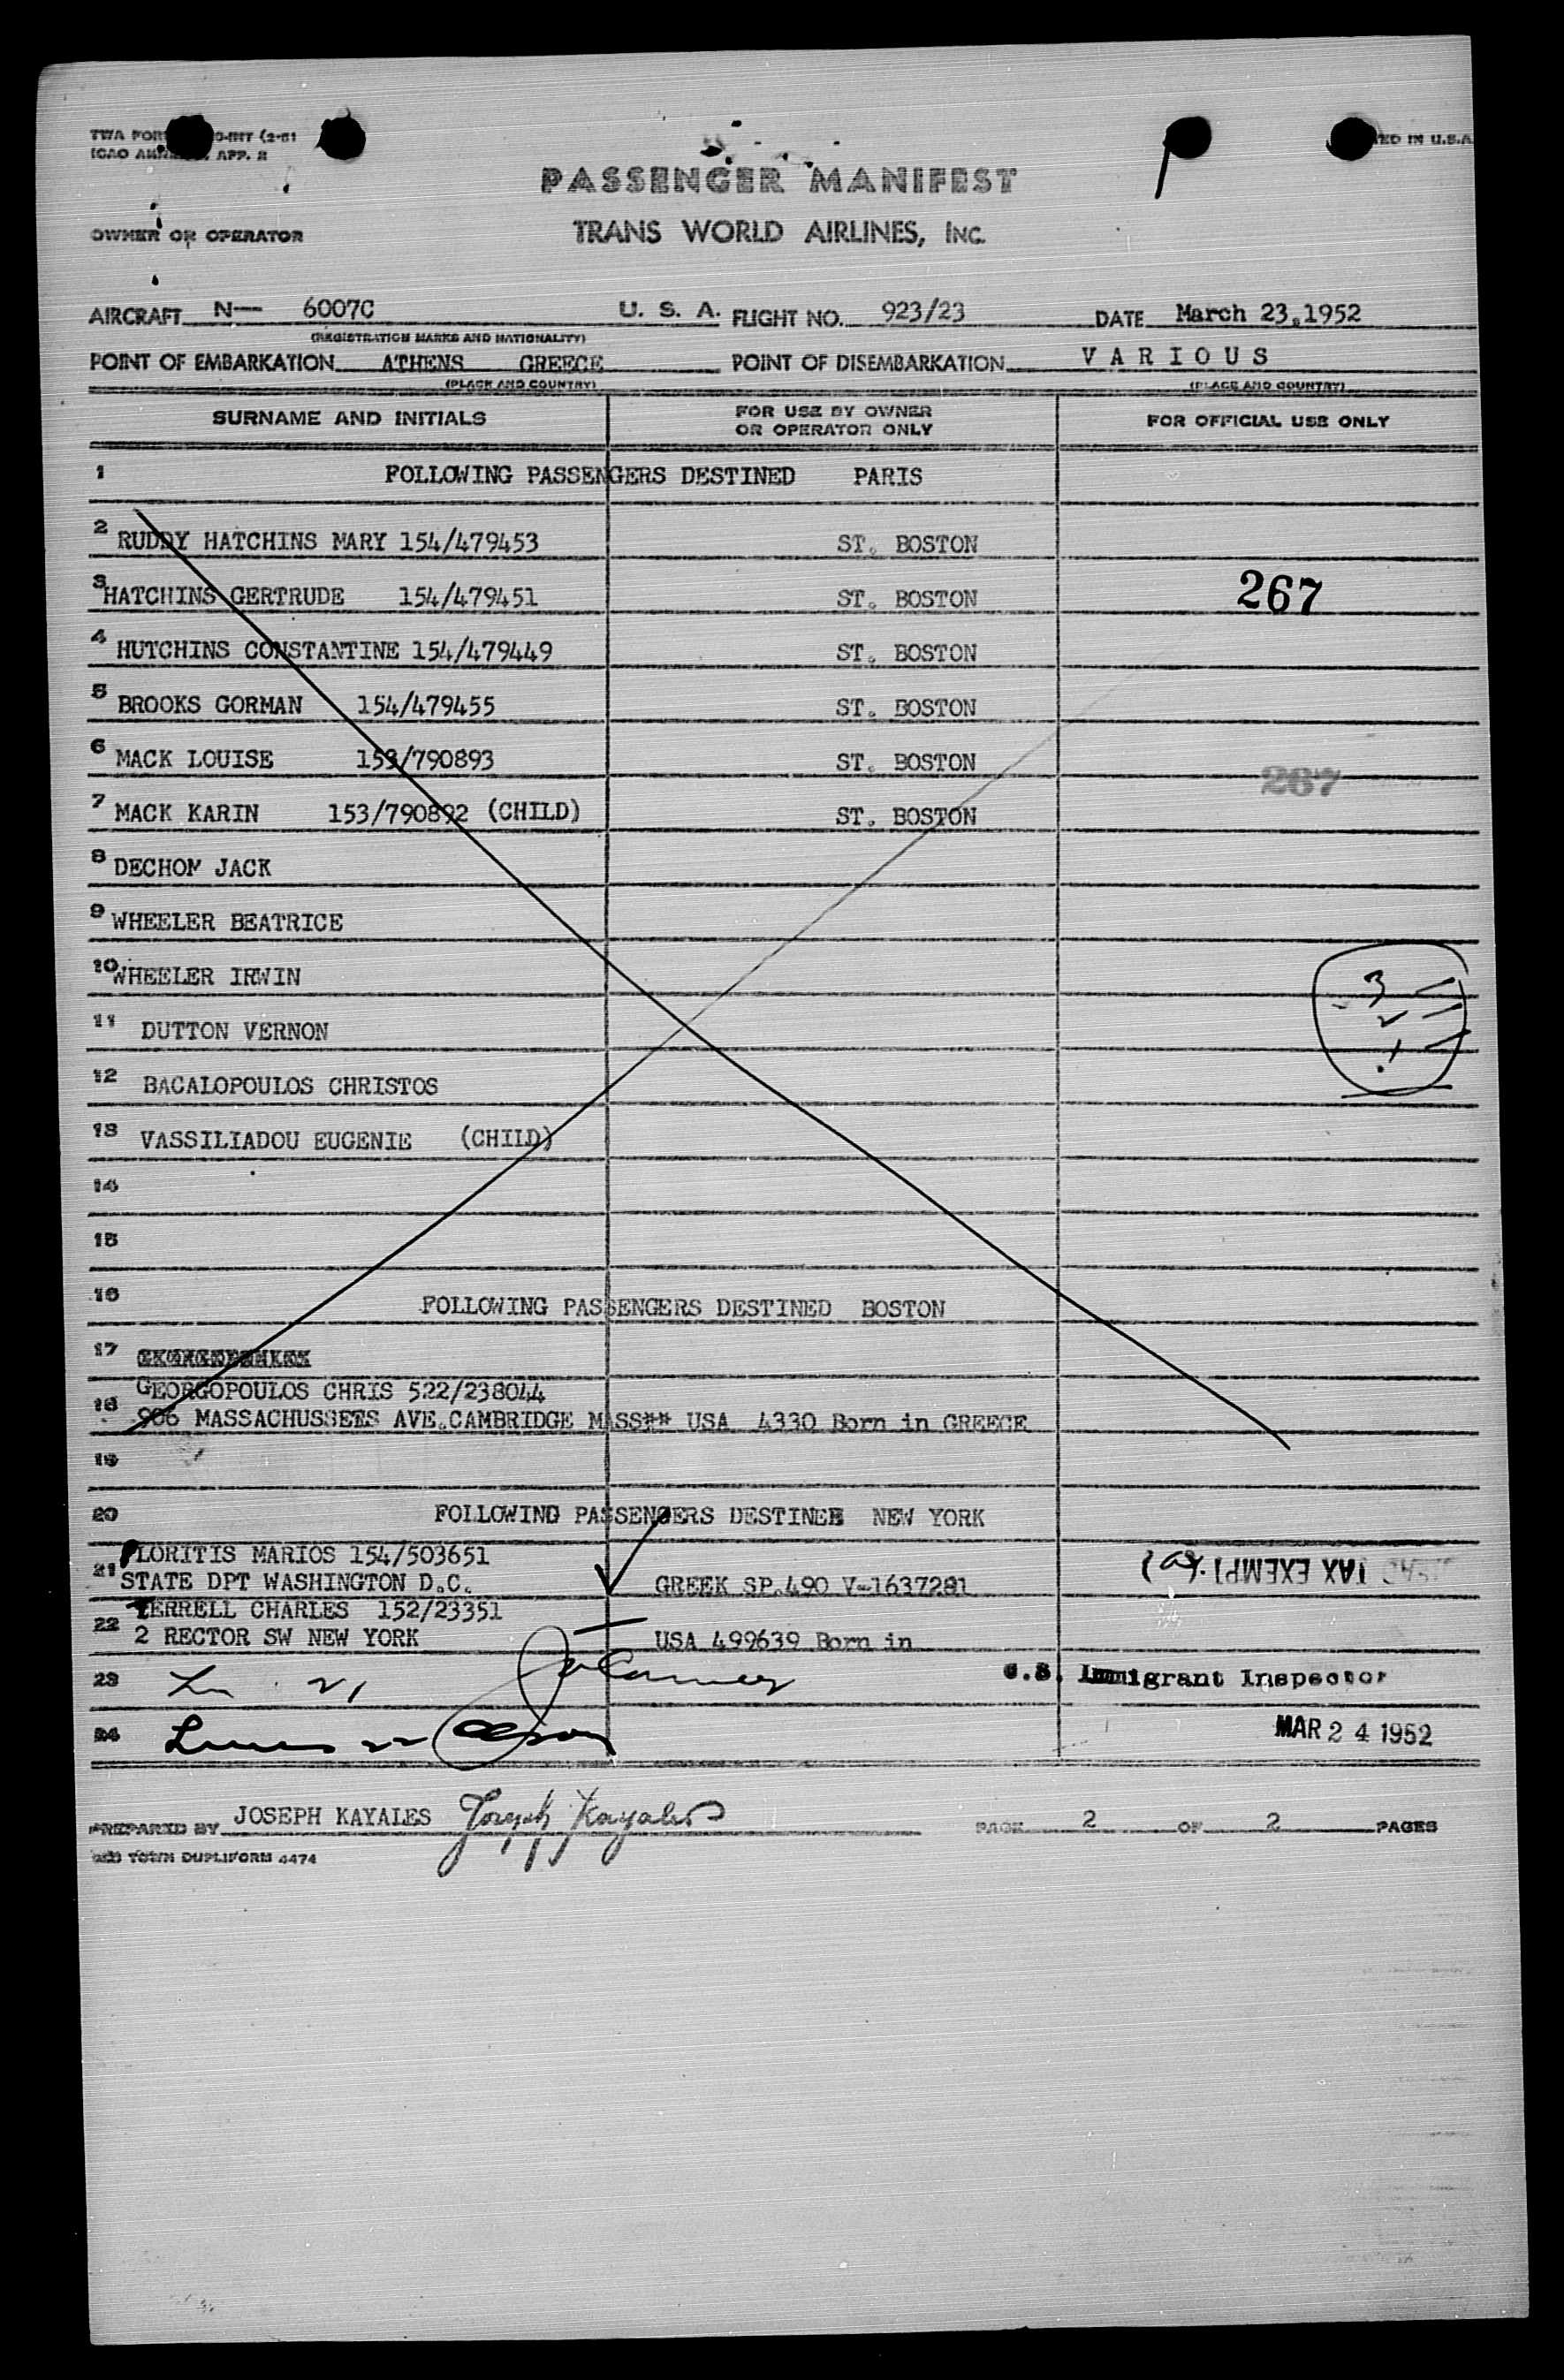 TWA FORM
ICAO ANNEX APP.
PASSENGER MANIFEST
OWNER OR OPERATOR
TRANS WORLD AIRLINES, INC.
AIRCRAFT N-- 6007C U. S. A. FLIGHT NO. 923/23 DATE March 23,1952
(REGISTRATION MARKS AND NATIONALITY)
POINT OF EMBARKATION ATHENS GREECE POINT OF DISEMBARKATION V A R I O U S
(PLACE AND COUNTRY) (PLACE AND COUNTRY)
SURNAME AND INITIALS FOR USE BY OWNER OR OPERATOR ONLY FOR OFFICIAL USE ONLY
1 FOLLOWING PASSENGERS DESTINED PARIS
2 RUDDY HATCHINS MARY 154/479453 ST. BOSTON
3 HATCHINS GERTRUDE 154/479451 ST. BOSTON 267
4 HUTCHINS CONSTANTINE 154/479449 ST. BOSTON
5 BROOKS GORMAN 154/479455 ST. BOSTON
6 MACK LOUISE 153/790893 ST. BOSTON 267
7 MACK KARIN 153/790892 (CHILD) ST. BOSTON
8 DECHOM JACK
9 WHEELER BEATRICE
10 WHEELER IRWIN
11 DUTTON VERNON
12 BACALOPOULOS CHRISTOS
13 VASSILIADOU EUGENIE (CHILD)
14
15
16 FOLLOWING PASSENGERS DESTINED BOSTON
17
GEORGOPOULOS CHRIS 522/238044
18 906 MASSACHUSSETS AVE.CAMBRIDGE MASS** USA 4330 Born in GREECE
19
20 FOLLOWING PASSENGERS DESTINED NEW YORK
PLORITIS MARIOS 154/503651
21 STATE DPT WASHINGTON D.C. GREEK SP.490 V-1637281 TAX EXEMPT
TERRELL CHARLES 152/23351
22 2 RECTOR SW NEW YORK USA 499639 Born in
23 U.S. Immigrant Inspector
24 MAR 24 1952
PREPARED BY JOSEPH KAYALES Joseph Kayales PAGE 2 OF 2 PAGES
TOWN DUPLIFORM 4474